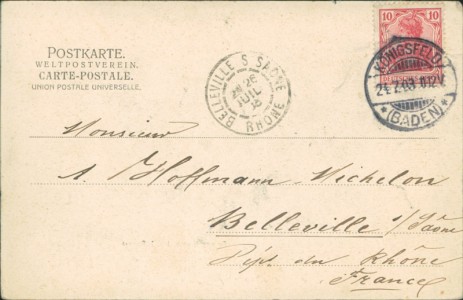 POSTKARTE.
WELTPOSTVEREIN.
CARTE-POSTALE.
UNION POSTALE UNIVERSELLE.
BELLEVILLE S. SAÔNE
26
JUIL
RHÔNE
10 10
KÖNIGSFELD
(BADEN)
Monsieur
A. Hoffmann Michelon
Belleville s/Saône
du Rhône
France